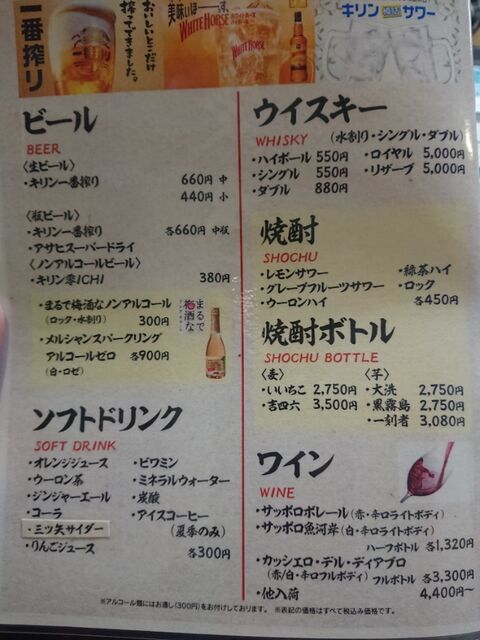 一番搾り
おいしいとこだけ
搾ってできました。
美味いほ
WHITE HORSE
ホワイトホース
WHITE HORSE
キリン 焼酎 サワー
ビール
BEER
〈生ビール〉
・キリン一番搾り 660円 中
440円 小
〈瓶ビール〉
・キリン一番搾り 各660円 中瓶
・アサヒスーパードライ
〈ノンアルコールビール〉
・キリン零ICHI 380円
・まるで梅酒なノンアルコール
(ロック・水割り) 300円
まるで
梅酒な
・メルシャンスパークリング
アルコールゼロ 各900円
(白・ロゼ)
ソフトドリンク
SOFT DRINK
・オレンジジュース
・ウーロン茶
・ジンジャーエール
・コーラ
・三ツ矢サイダー
・りんごジュース
・ビワミン
・ミネラルウォーター
・炭酸
・アイスコーヒー
(夏季のみ)
各300円
ウイスキー
WHISKY (水割り・シングル・ダブル)
・ハイボール 550円 ・ロイヤル 5,000円
・シングル 550円 ・リザーブ 5,000円
・ダブル 880円
焼酎
SHOCHU
・レモンサワー ・緑茶ハイ
・グレープフルーツサワー ・ロック
・ウーロンハイ 各450円
焼酎ボトル
SHOCHU BOTTLE
〈麦〉 〈芋〉
・いいちこ 2,750円 ・大洗 2,750円
・吉四六 3,500円 ・黒霧島 2,750円
・一刻者 3,080円
ワイン
WINE
・サッポロポレール(赤・辛口ライトボディ)
・サッポロ魚河岸(白・辛口ライトボディ)
ハーフボトル 各1,320円
・カッシェロ・デル・ディアブロ
(赤/白・辛口フルボディ) フルボトル 各3,300円
・他入荷 4,400円〜
※アルコール類にはお通し(300円)をお付けしております。 ※表記の価格はすべて税込み価格です。